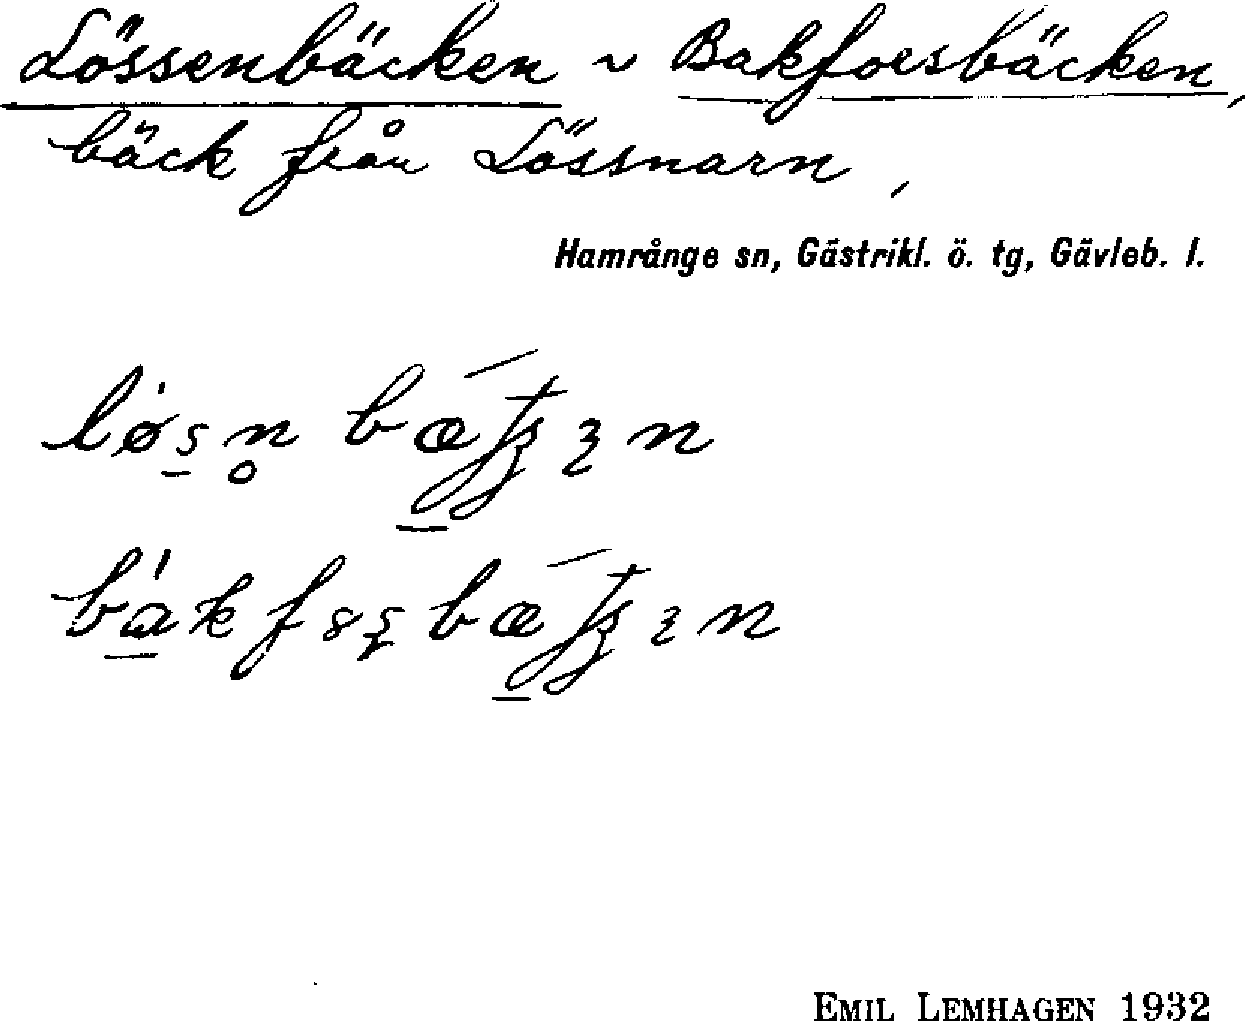 Lössenbäcken ~ Bakforsbäcken,
bäck från Lössnarn,
Hamrånge sn, Gästrikl. ö. tg, Gävleb. l.
EMIL LEMHAGEN 1932